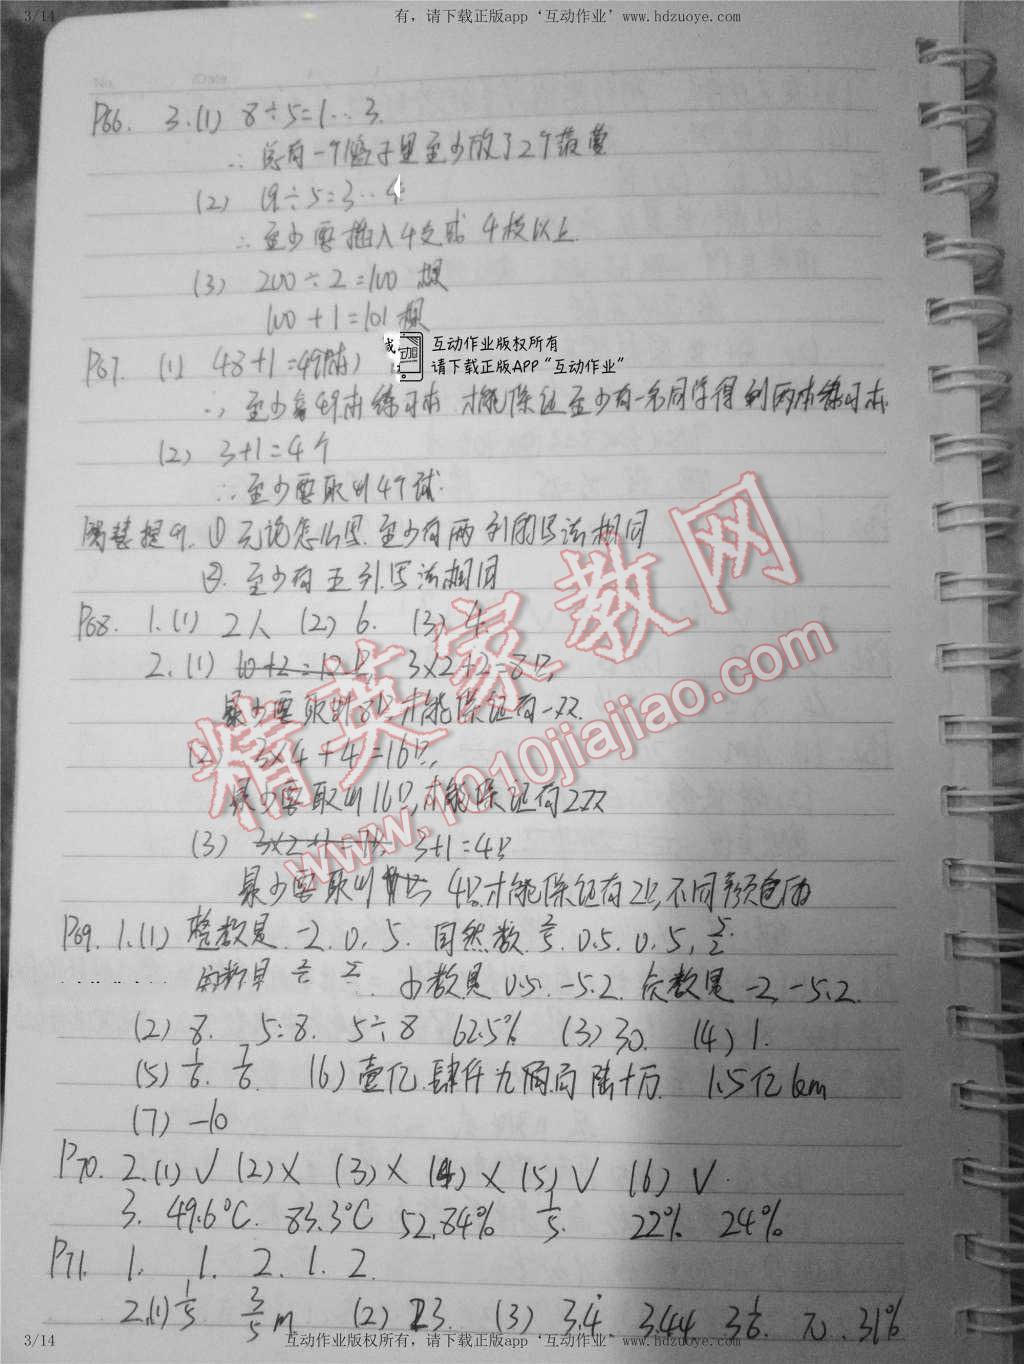 3/14
有，请下载正版app‘互动作业’www.hdzuoye.com
No.
Date
P66. 3.(1) 8÷5=1…3.
∴总有一个盒子里至少放了2个
(2) 19÷5=3…4
∴至少要插入4支或4枝以上
(3) 200÷2=100棵
100+1=101棵
互动作业版权所有
请下载正版APP“互动作业”
P67. (1) 48+1=49(本)
∴至少有49本练习本 才能保证至少有一名同学得到两本练习本
(2) 3+1=4个
∴至少要取出4个球.
① 无论怎么写.至少有两列的写法相同
②. 至少有五列写法相同
P68. 1.(1) 2人 (2) 6. (3) 4.
2.(1) 10+2=12只, 3×2+2=8只,
最少要取出8只才能保证有一双.
(2) 3×4+4=16只,
最少要取出16只,才能保证有2双
(3) 3+1=4只
最少要取出 4只才能保证有2只不同颜色的
P69. 1.(1) 整数是 -2. 0. 5. 自然数 2/5. 0.5. 0. 5, 5/2.
小数是 0.5. -5.2. 负数是 -2, -5.2.
(2) 8. 5:8. 5÷8 62.5% (3) 30. (4) 1.
(5) 1/6. 7/6. (6) 壹亿肆仟九佰 陆十万. 1.5亿km
(7) -10
P70. 2.(1) √ (2) × (3) × (4) × (5) √ (6) √.
3. 49.6°C. 83.3°C 52.84% 1/5. 22% 24%
P71. 1. 1. 2. 1. 2.
2.(1) 1/5 3/5 m (2) 23. (3) 3.4̇ 3.44 3 1/6. π. 31%
精英家教网
www.1010jiajiao.com
3/14
互动作业版权所有，请下载正版app‘互动作业’www.hdzuoye.com